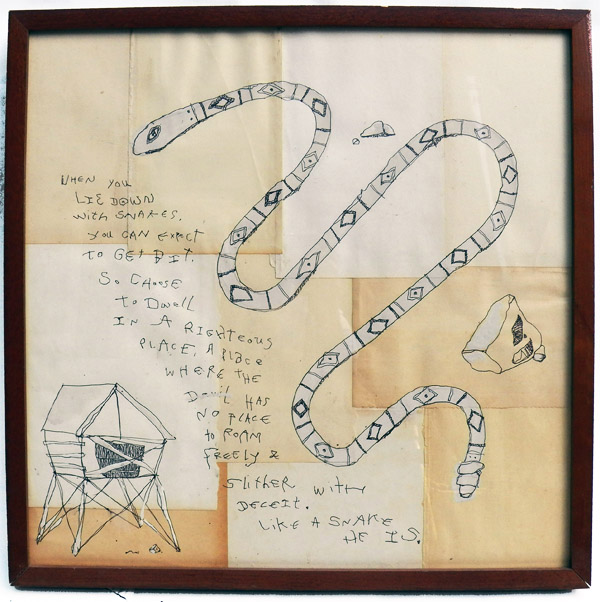 WHEN YOU
LIE DOWN
WITH SNAKES,
YOU CAN EXPECT
TO GET BIT.
SO CHOOSE
TO DWELL
IN A RIGHTEOUS
PLACE, A PLACE
WHERE THE
DEVIL HAS
NO PLACE
TO ROAM
FREELY &
SLITHER WITH
DECEIT.
LIKE A SNAKE
HE IS.